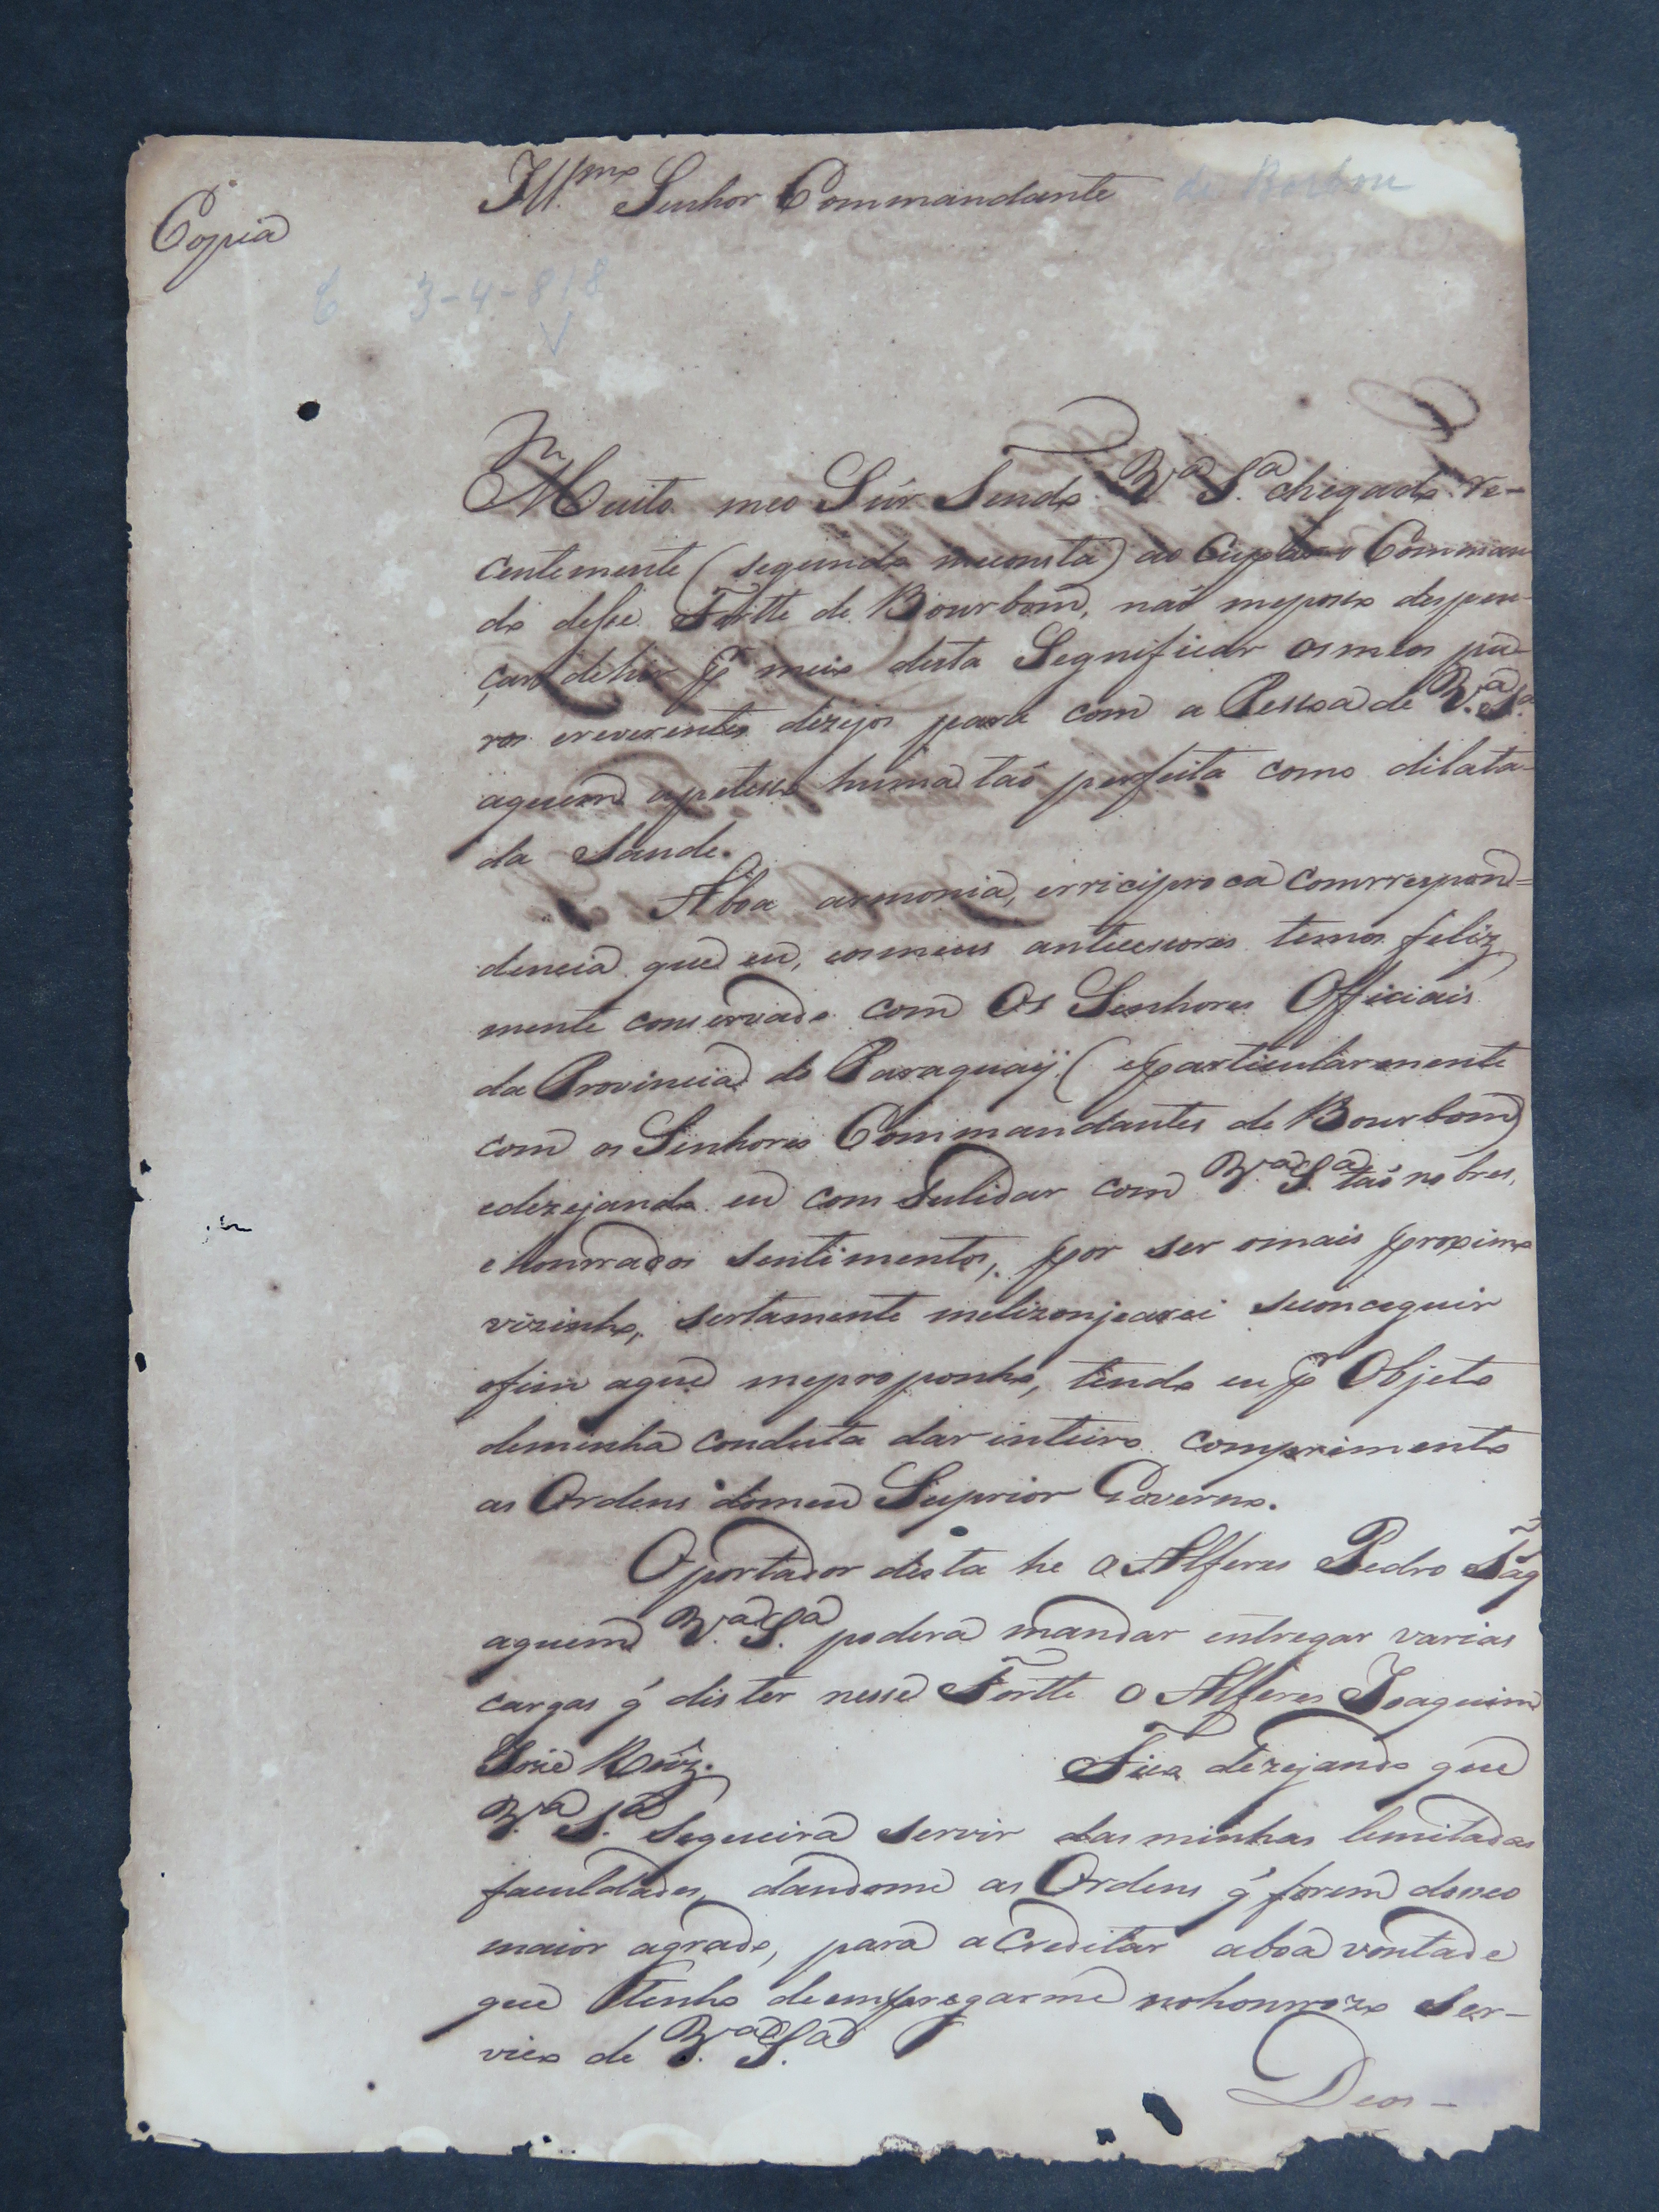 Copia
Ill.mo Senhor Commandante de Borbon
C 3-4-818
Muito meo Snr Sendo V.a S.a chegado re-
centemente (segundo meconsta) ao Comman
do desse Fortte de Bourbom, naõ meposso despen-
çar dehir p.r meio desta Segnificar osmeos pu-
ros ereverentes dezejos para com a Pessoa de V.a S.a
aquem apetesso huma taõ perfeita como dilata-
da Saude.
Aboa armonia, erriciproca Comrrespon=
dencia que eu, eosmeus antecessores temos feliz
mente conservado com Os Senhores Officiais
da Provincia do Paraguaÿ (eparticularmente
com os Senhores Commandantes de Bourbom)
edezejando eu com Sulidar com V.a S.a taõ nobres,
e honrrados sentimentos, por ser omais proximo
vizinho, sertamente melizonjearei seconceguir
ofim aque meproponho, tendo eu p.r Objeto
deminha conduta dar inteiro comprimento
as Ordens domeu Suprior Governo.
Oportador desta he o Alferes Pedro
aquem V.a S.a poderá mandar entregar varias
cargas q' dis ter nesse Fortte o Alferes Joaquim
Jozé Roiz. Fico dezejando que
V.a S.a Sequeira servir das minhas lemitadas
faculdades, dandome as Ordens q' forem doseo
maior agrado, para acreditar aboa vontade
que tenho deempregarme nohonrrozo Ser-
viço de V.a S.a
Deos-